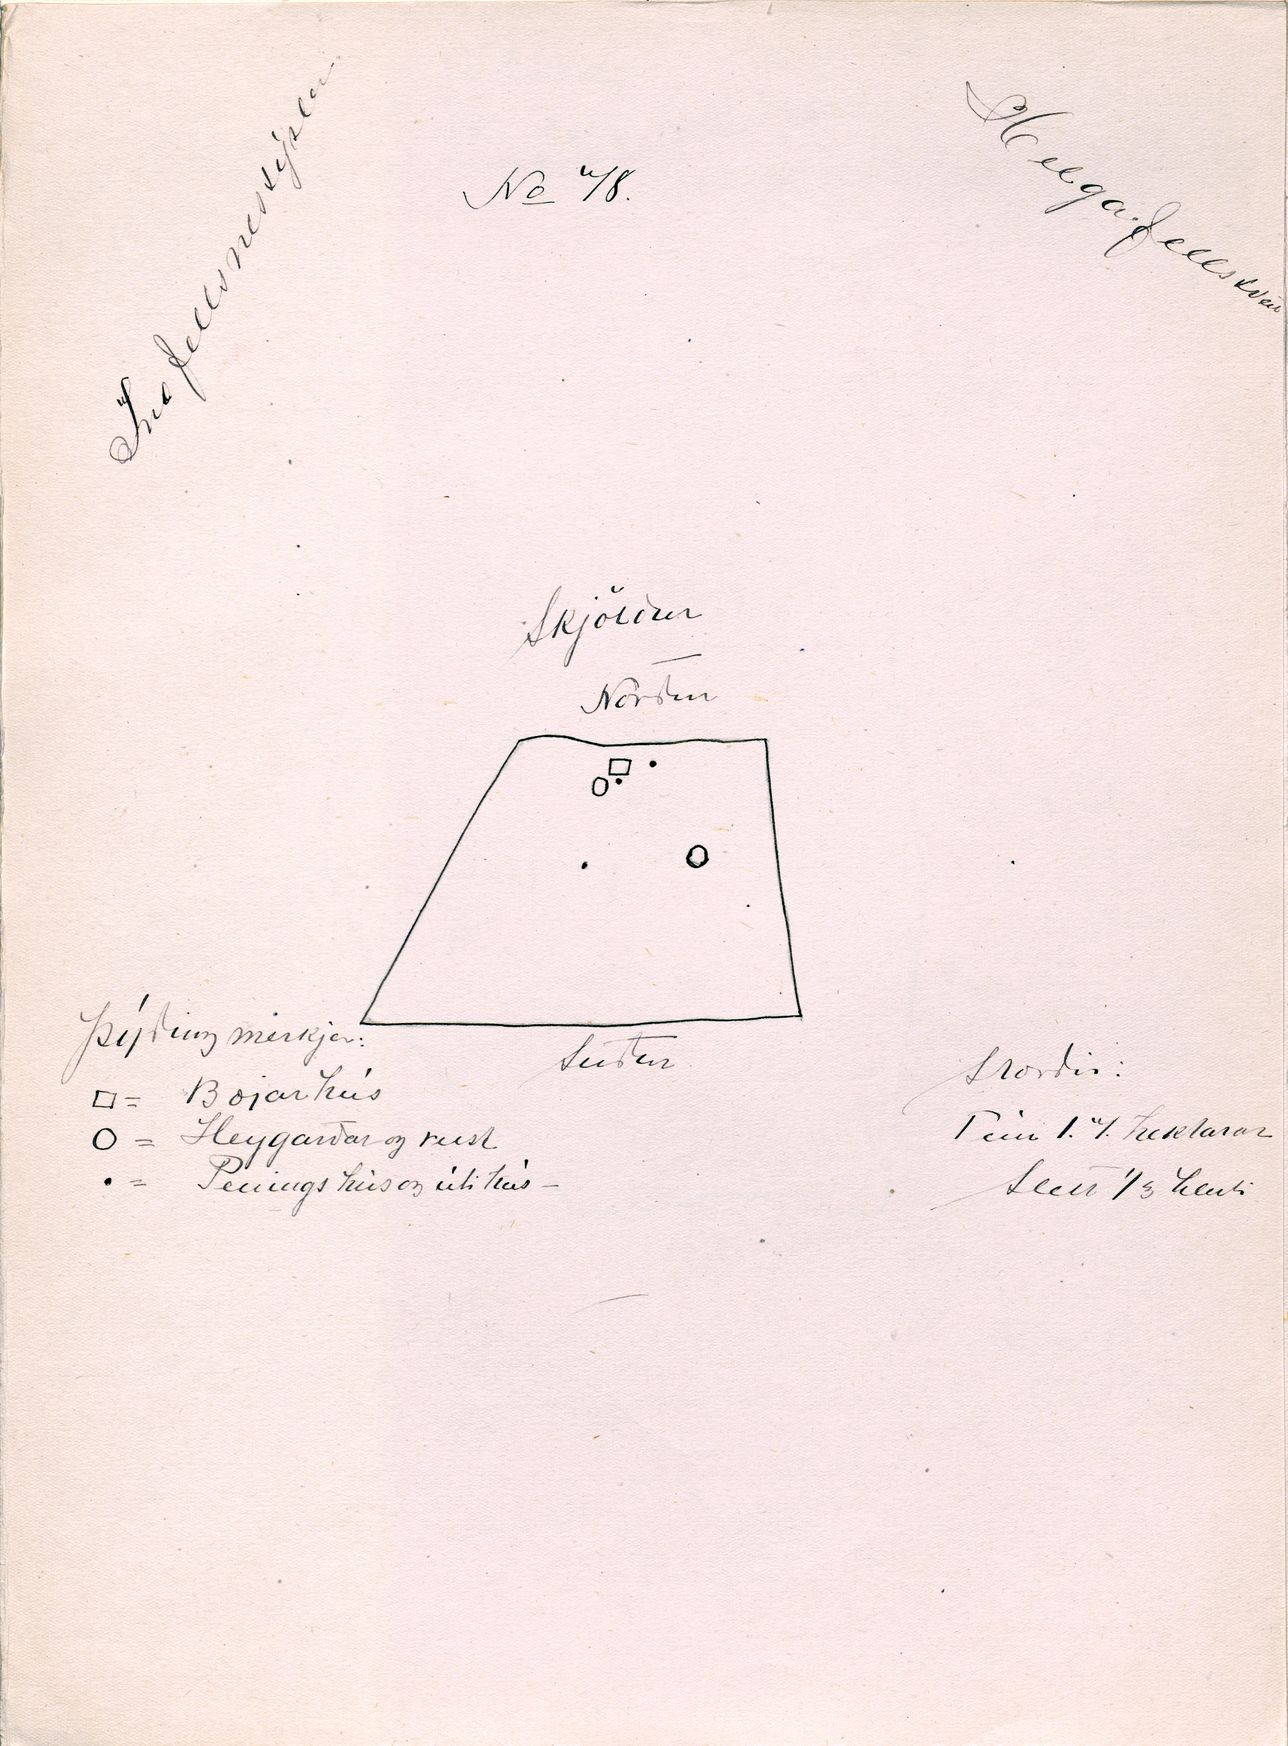 Snæfellsnessýsla
No 48.
Helgafellssveit
Skjöldur
Norður
Suður
Þýðing merkja:
□ = Bæjarhús
O = Heygarðar og rúst
• = Peningshús og útihús –
Stærðir:
Tún 1.4. hektarar
Slétt 1/3 hluti